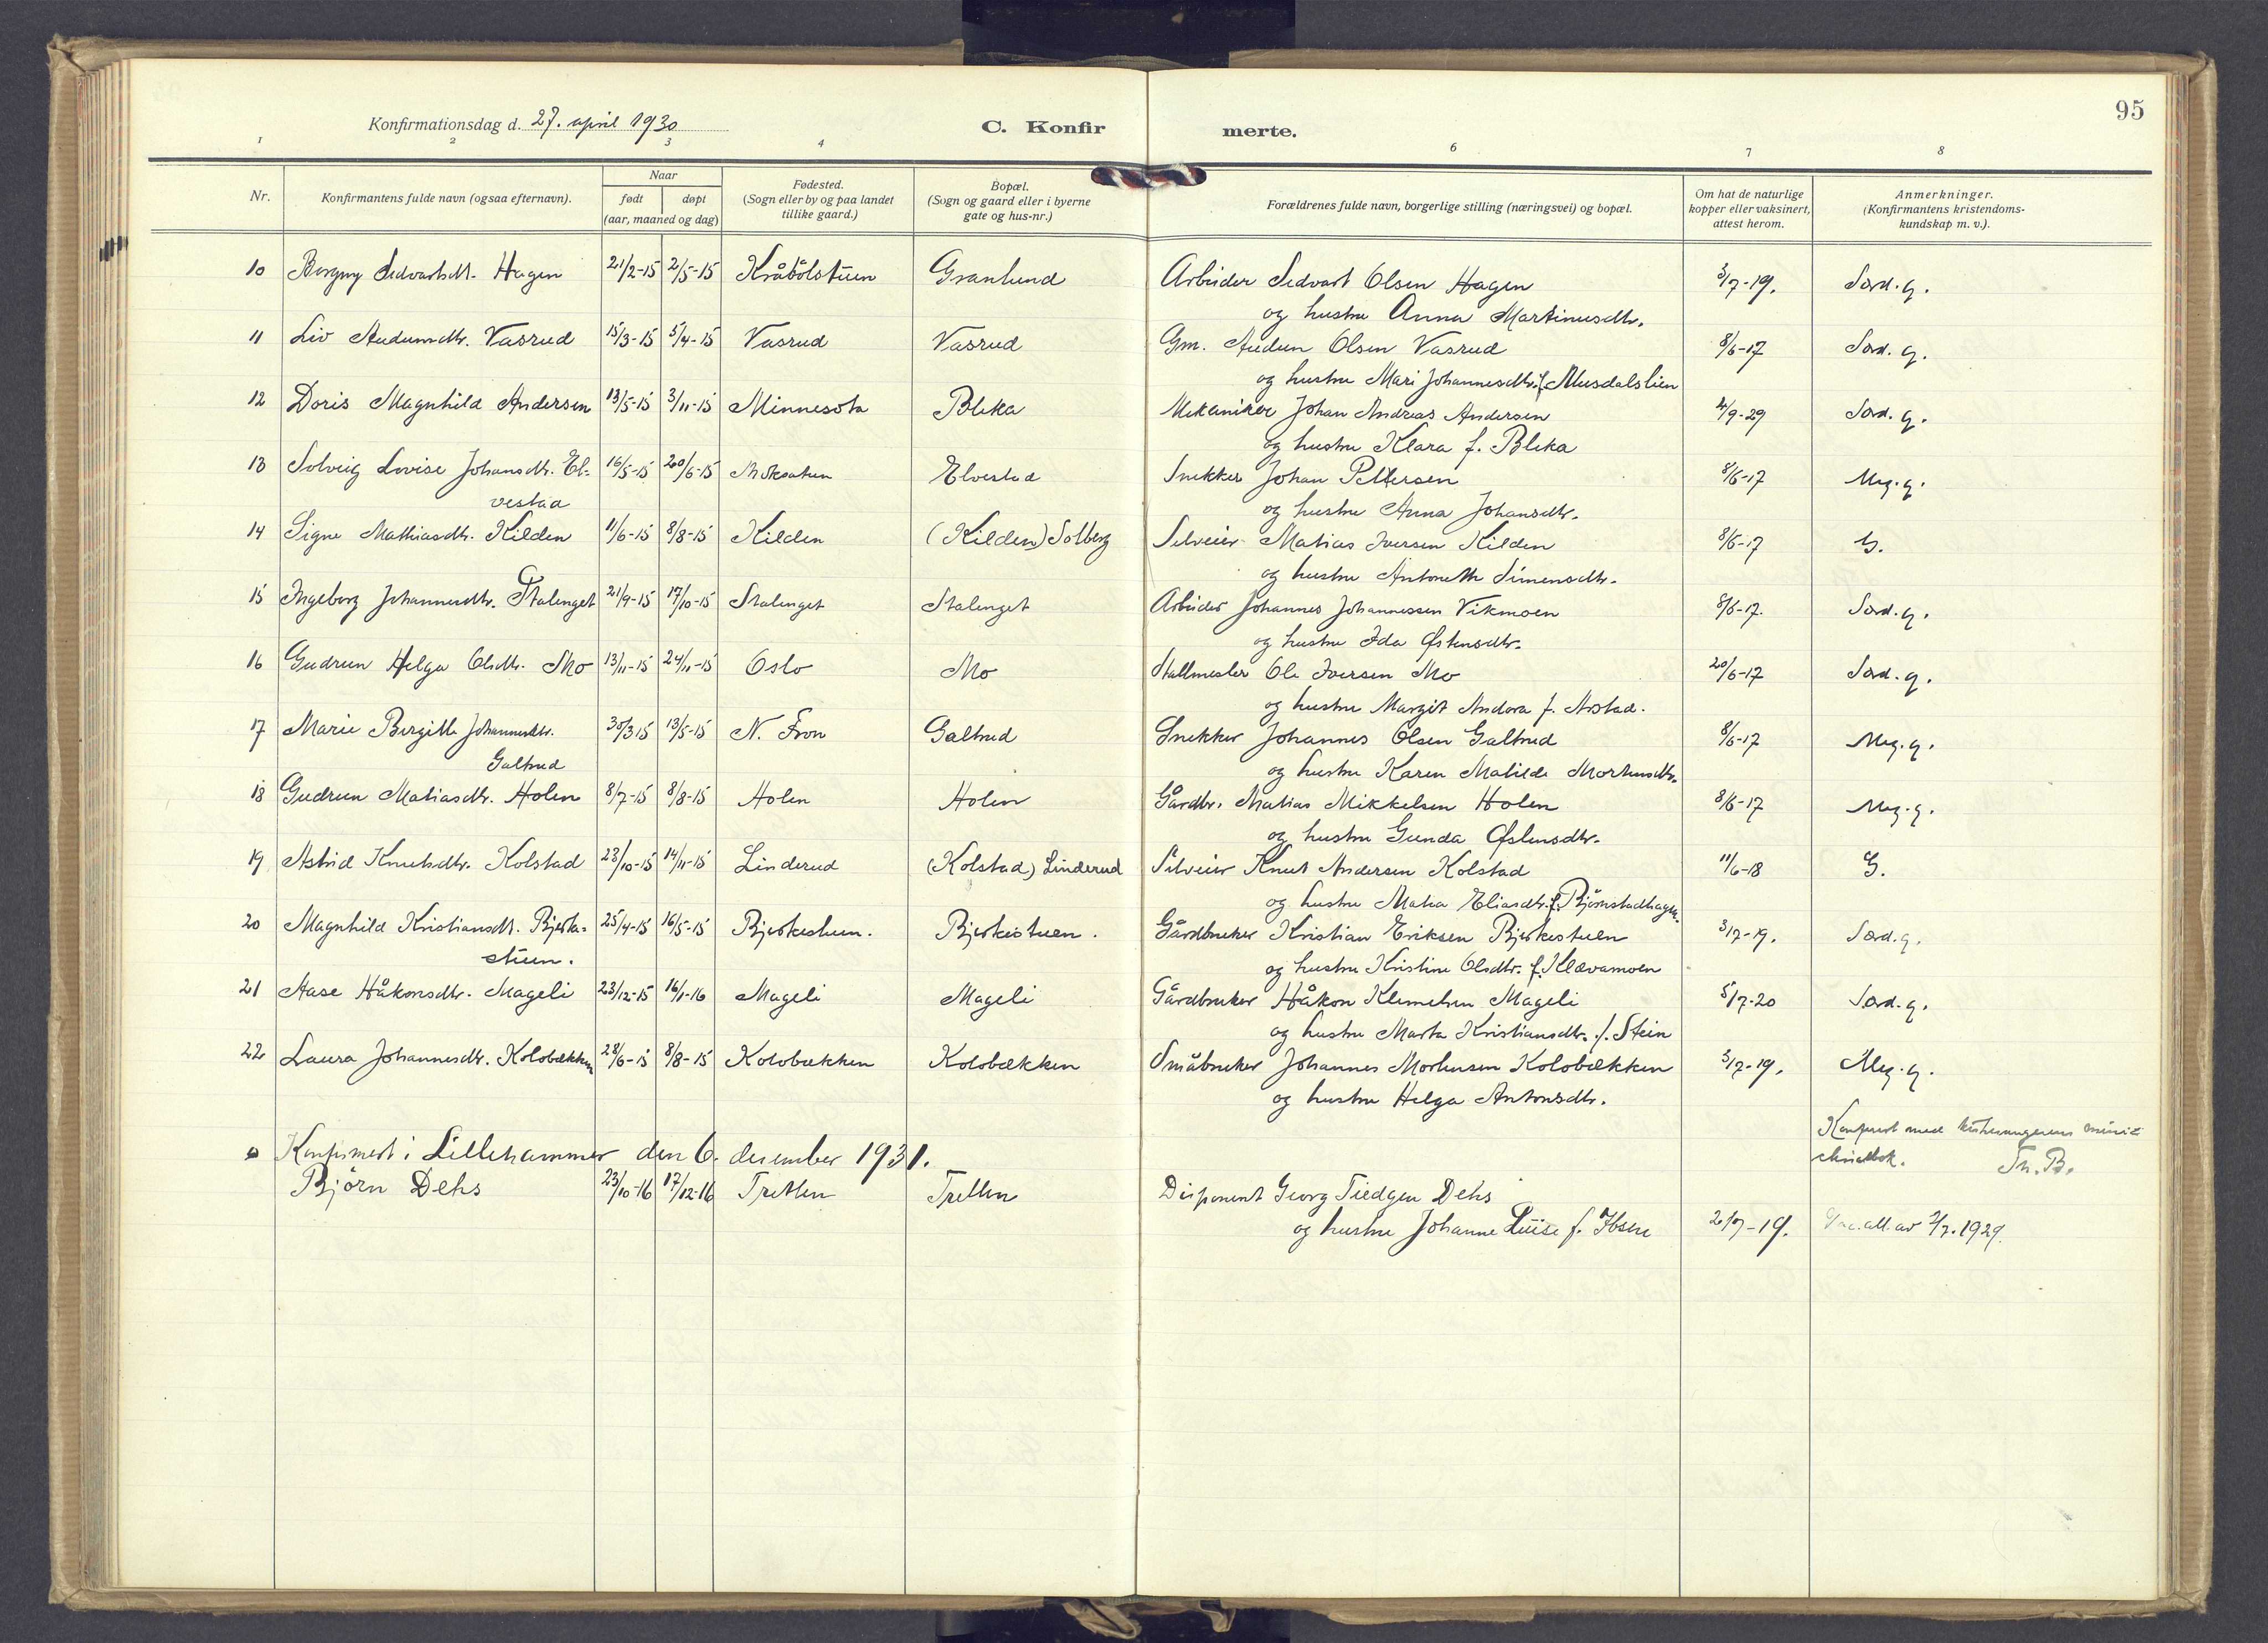 95
Konfirmationsdag d. 27. april 1930
C. Konfir merte.
1 2 3 4 6 7 8
Nr.
Konfirmantens fulde navn (ogsaa efternavn).
Naar
født døpt
(aar, maaned og dag)
Fødested.
(Sogn eller by og paa landet
tillike gaard.)
Bopæl.
(Sogn og gaard eller i byerne
gate og hus-nr.)
Forældrenes fulde navn, borgerlige stilling (næringsvei) og bopæl.
Om hat de naturlige
kopper eller vaksinert,
attest herom.
Anmerkninger.
(Konfirmantens kristendoms-
kundskap m. v.).
10 Borgny Sedvartsdt. Hagen 21/2-15 2/5-15 Kråbölstuen Granlund Arbeider Sedvart Olsen Hagen 3/7-19. Særd. g.
og hustru Anna Martinusdtr.
11 Liv Audunsdtr. Vasrud 15/3-15 5/4-15 Vasrud Vasrud Gm. Audun Olsen Vasrud 8/6-17 Særd. g.
og hustru Mari Johannesdtr. f. Musdalslien
12 Doris Magnhild Andersen 13/5-15 3/11-15 Minnesota Bleka Mekaniker Johan Andreas Andersen 4/9-29 Særd. g.
og hustru Klara f. Bleka
13 Solveig Lovise Johansdtr. El- 16/5-15 20/6-15 Elvestad Snekker Johan Pettersen 8/6-17 Meg. g.
vestad
og hustru Anna Johansdtr.
14 Signe Mathiasdtr. Kilden 11/6-15 8/8-15 Kilden (Kilden) Solberg Selveier Matias Iversen Kilden 8/6-17 G.
og hustru Antonette Simensdtr.
15 Ingeborg Johannesdtr. Stalenget 21/9-15 17/10-15 Stalenget Stalenget Arbeider Johannes Johannessen Vikmoen 8/6-17. Særd. g.
og hustru Ida Østensdtr.
16 Gudrun Helga Olsdtr. Mo 13/11-15 24/11-15 Oslo Mo Stallmester Ole Iversen Mo 20/6-17 Særd. g.
og hustru Margit Andora f. Arstad.
17 Marie Bergitte Johannesdtr. 30/3 15 13/5-15 N. Fron Galtrud Snekker Johannes Olsen Galtrud 8/6-17 Meg. g.
Galtrud
og hustru Karen Matilde Mortensdtr.
18 Gudrun Matiasdtr. Holen 8/7-15 8/8-15 Holen Holen Gårdbr. Matias Mikkelsen Holen 8/6-17 Meg. g.
og hustru Gunda Østensdtr.
19 Astrid Knutsdtr. Kolstad 23/10-15 14/11-15 Linderud (Kolstad) Linderud Selveier Knut Andersen Kolstad 11/6-18 G.
og hustru Matea Eliasdtr. f. Bjørnstadhagen
20 Magnhild Kristiansdt. Bjerke- 25/4-15 16/5-15 Bjerkestuen. Bjerkestuen. Gårdbruker Kristian Eriksen Bjerkestuen 3/7-19. Særd. g.
stuen.
og hustru Kristine Olsdtr. f. Klævamoen
21 Aase Håkonsdtr. Mageli 23/12-15 16/1-16 Mageli Mageli Gårdbruker Håkon Klemetsen Mageli 5/7-20 Særd. g.
og hustru Marta Kristiansdtr. f. Stein
22 Laura Johannesdtr. Kolobækken 28/6-15 8/8-15 Kolobækken Kolobækken Småbruker Johannes Mortensen Kolobækken 3/7-19. Meg. g.
og hustru Helga Antonsdtr.
Konfirmert i Lillehammer den 6. desember 1931.
Björn Dehs 23/10-16 17/12-16 Tretten Tretten Disponent Georg Tiedgen Dehs
og hustru Johanne Luise f. Ibsen 2/7-19. av 2/7.1929.
med
Th. B.